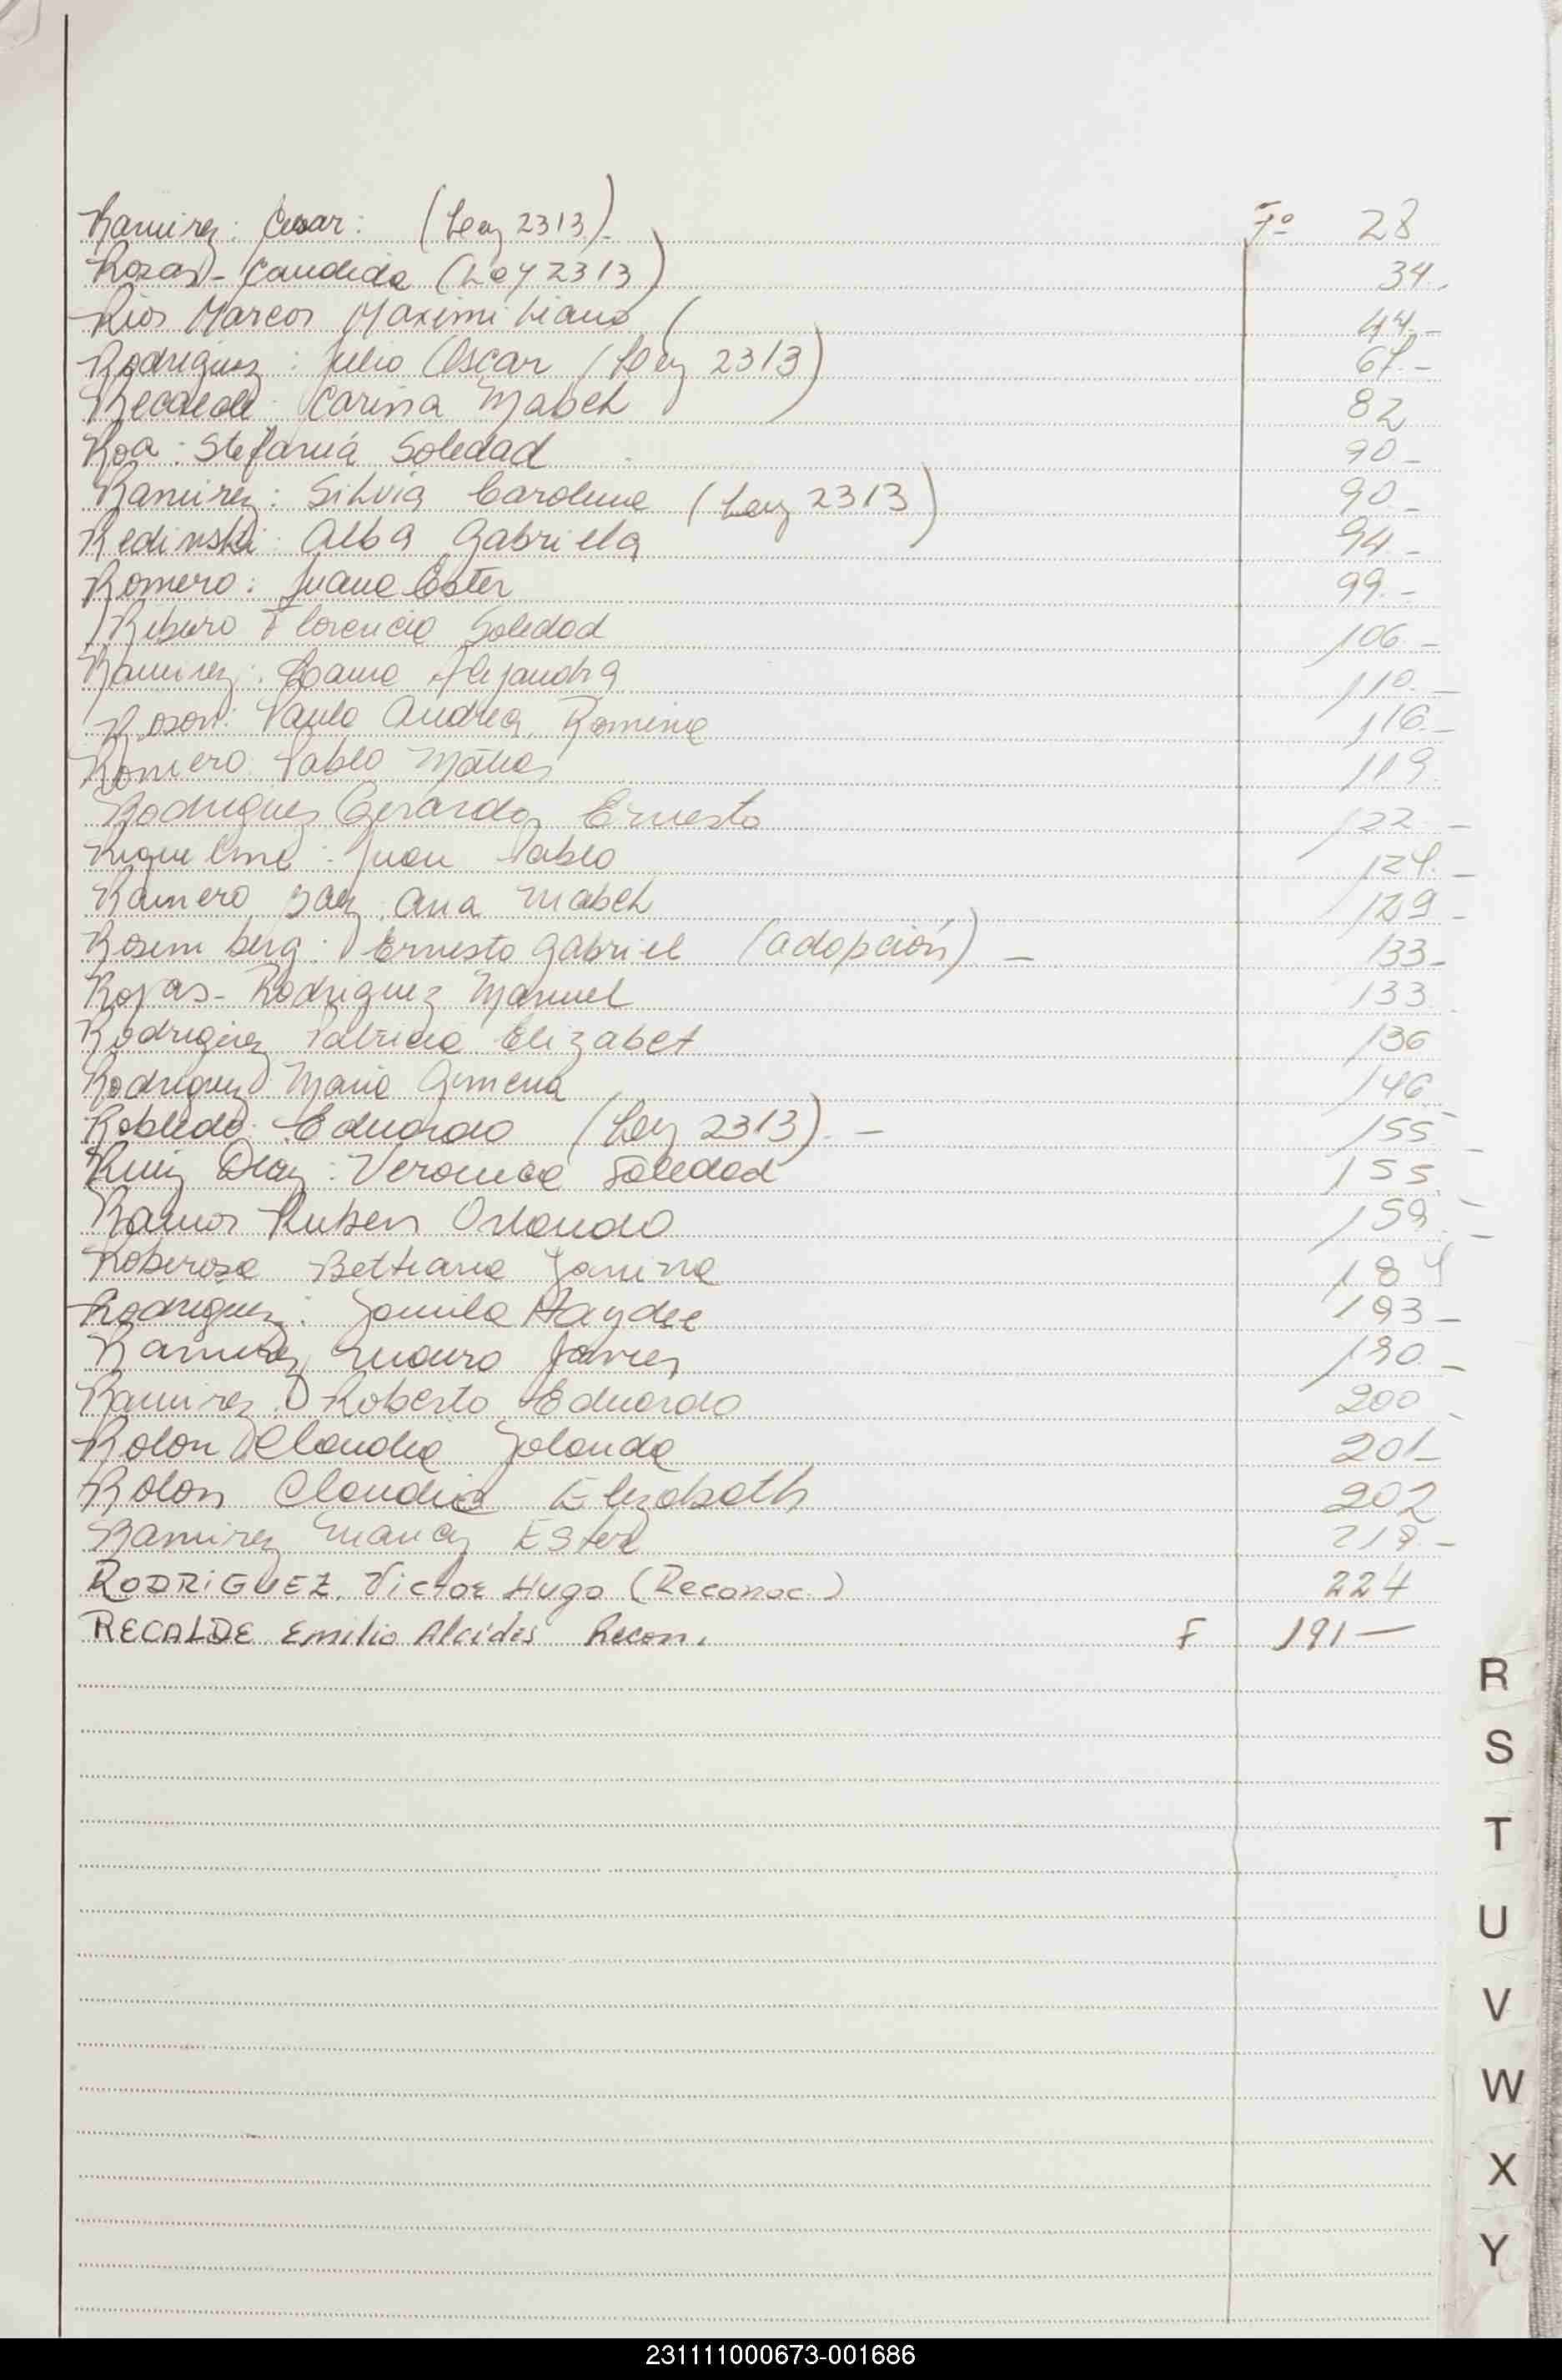 Ramirez: Cesar: (Ley 2313)- Fº 28
Rozas- Candida (Ley 2313) 34.
Rios Marcos Maximiliano ( 44.-
Rodriguez: Julio Oscar (Ley 2313) 67.-
Recalde Carina Mabel 82
Roa: Stefania Soledad 90-
Ramirez: Silvia Carolina (Ley 2313) 90.-
Redinski: Alba Gabriela 94-
Romero: Juana Ester 99.-
Ribero Florencia Soledad 106-
Ramirez: Alejandra 110.-
Paula Andrea Romina 116.-
Romero Pablo Matias 119.
Rodriguez Gerardo Ernesto 122-
Riquelme: Juan Pablo 124.-
Ana Mabel 129-
Rosemberg: Ernesto Gabriel (adopción) - 133-
Rojas- Rodriguez Manuel 133
Rodriguez Patricia Elizabet 136
Rodriguez Maria Gimena 146
Robledo. Eduardo (Ley 2313). - 155-
Ruiz Diaz: Veronica Soledad 155.
Ramos Ruben Orlando 159.-
Betiana Janina 184
Rodriguez: Jamila Haydee 193-
Ramirez Mauro Javier 190.-
Ramirez Roberto Eduardo 200
Rolon Claudia Jolanda 201-
Rolon Claudia Elizabeth 202
Ramirez Nancy Ester 218.-
RODRIGUEZ, Victor Hugo (Reconoc.) 224
RECALDE Emilio Alcides Recon. F 191-
R
S
T
U
V
W
X
Y
231111000673-001686